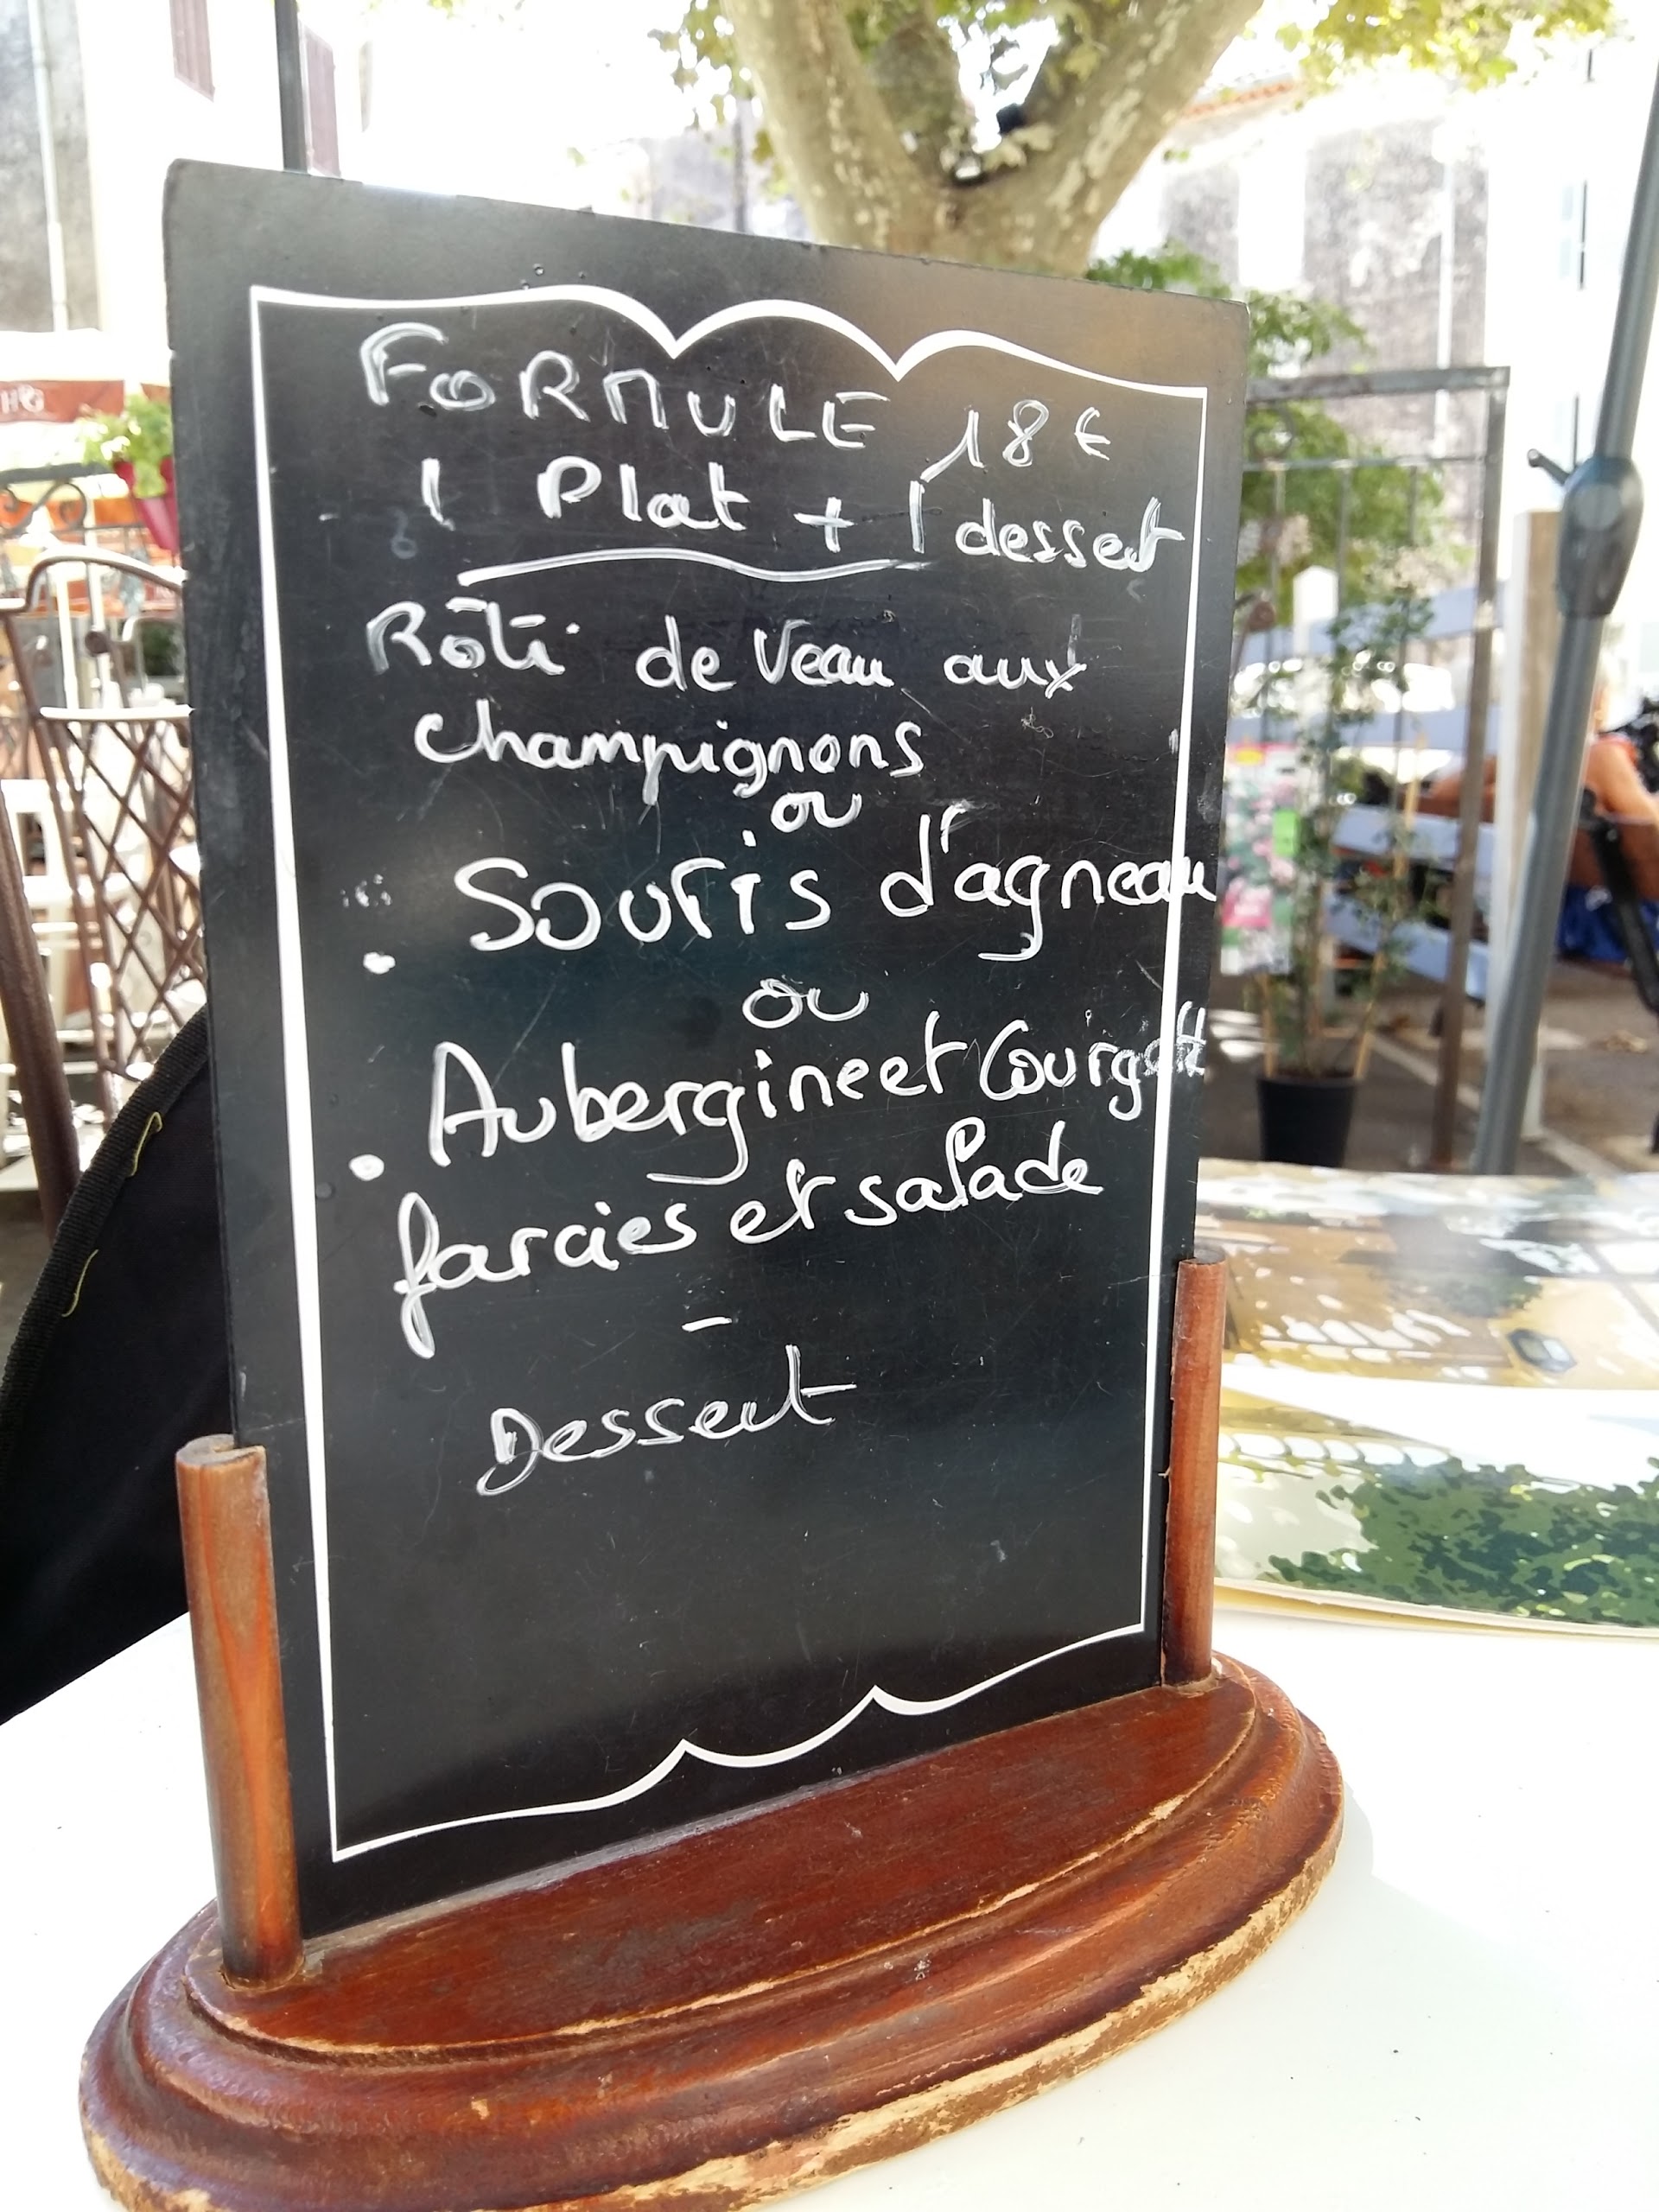 FORMULE 18€
1 Plat + 1 dessert
Rôti de Veau aux
champignons
ou
Souris d'agneau
ou
Aubergine et Courgette
farcies et salade
-
Dessert